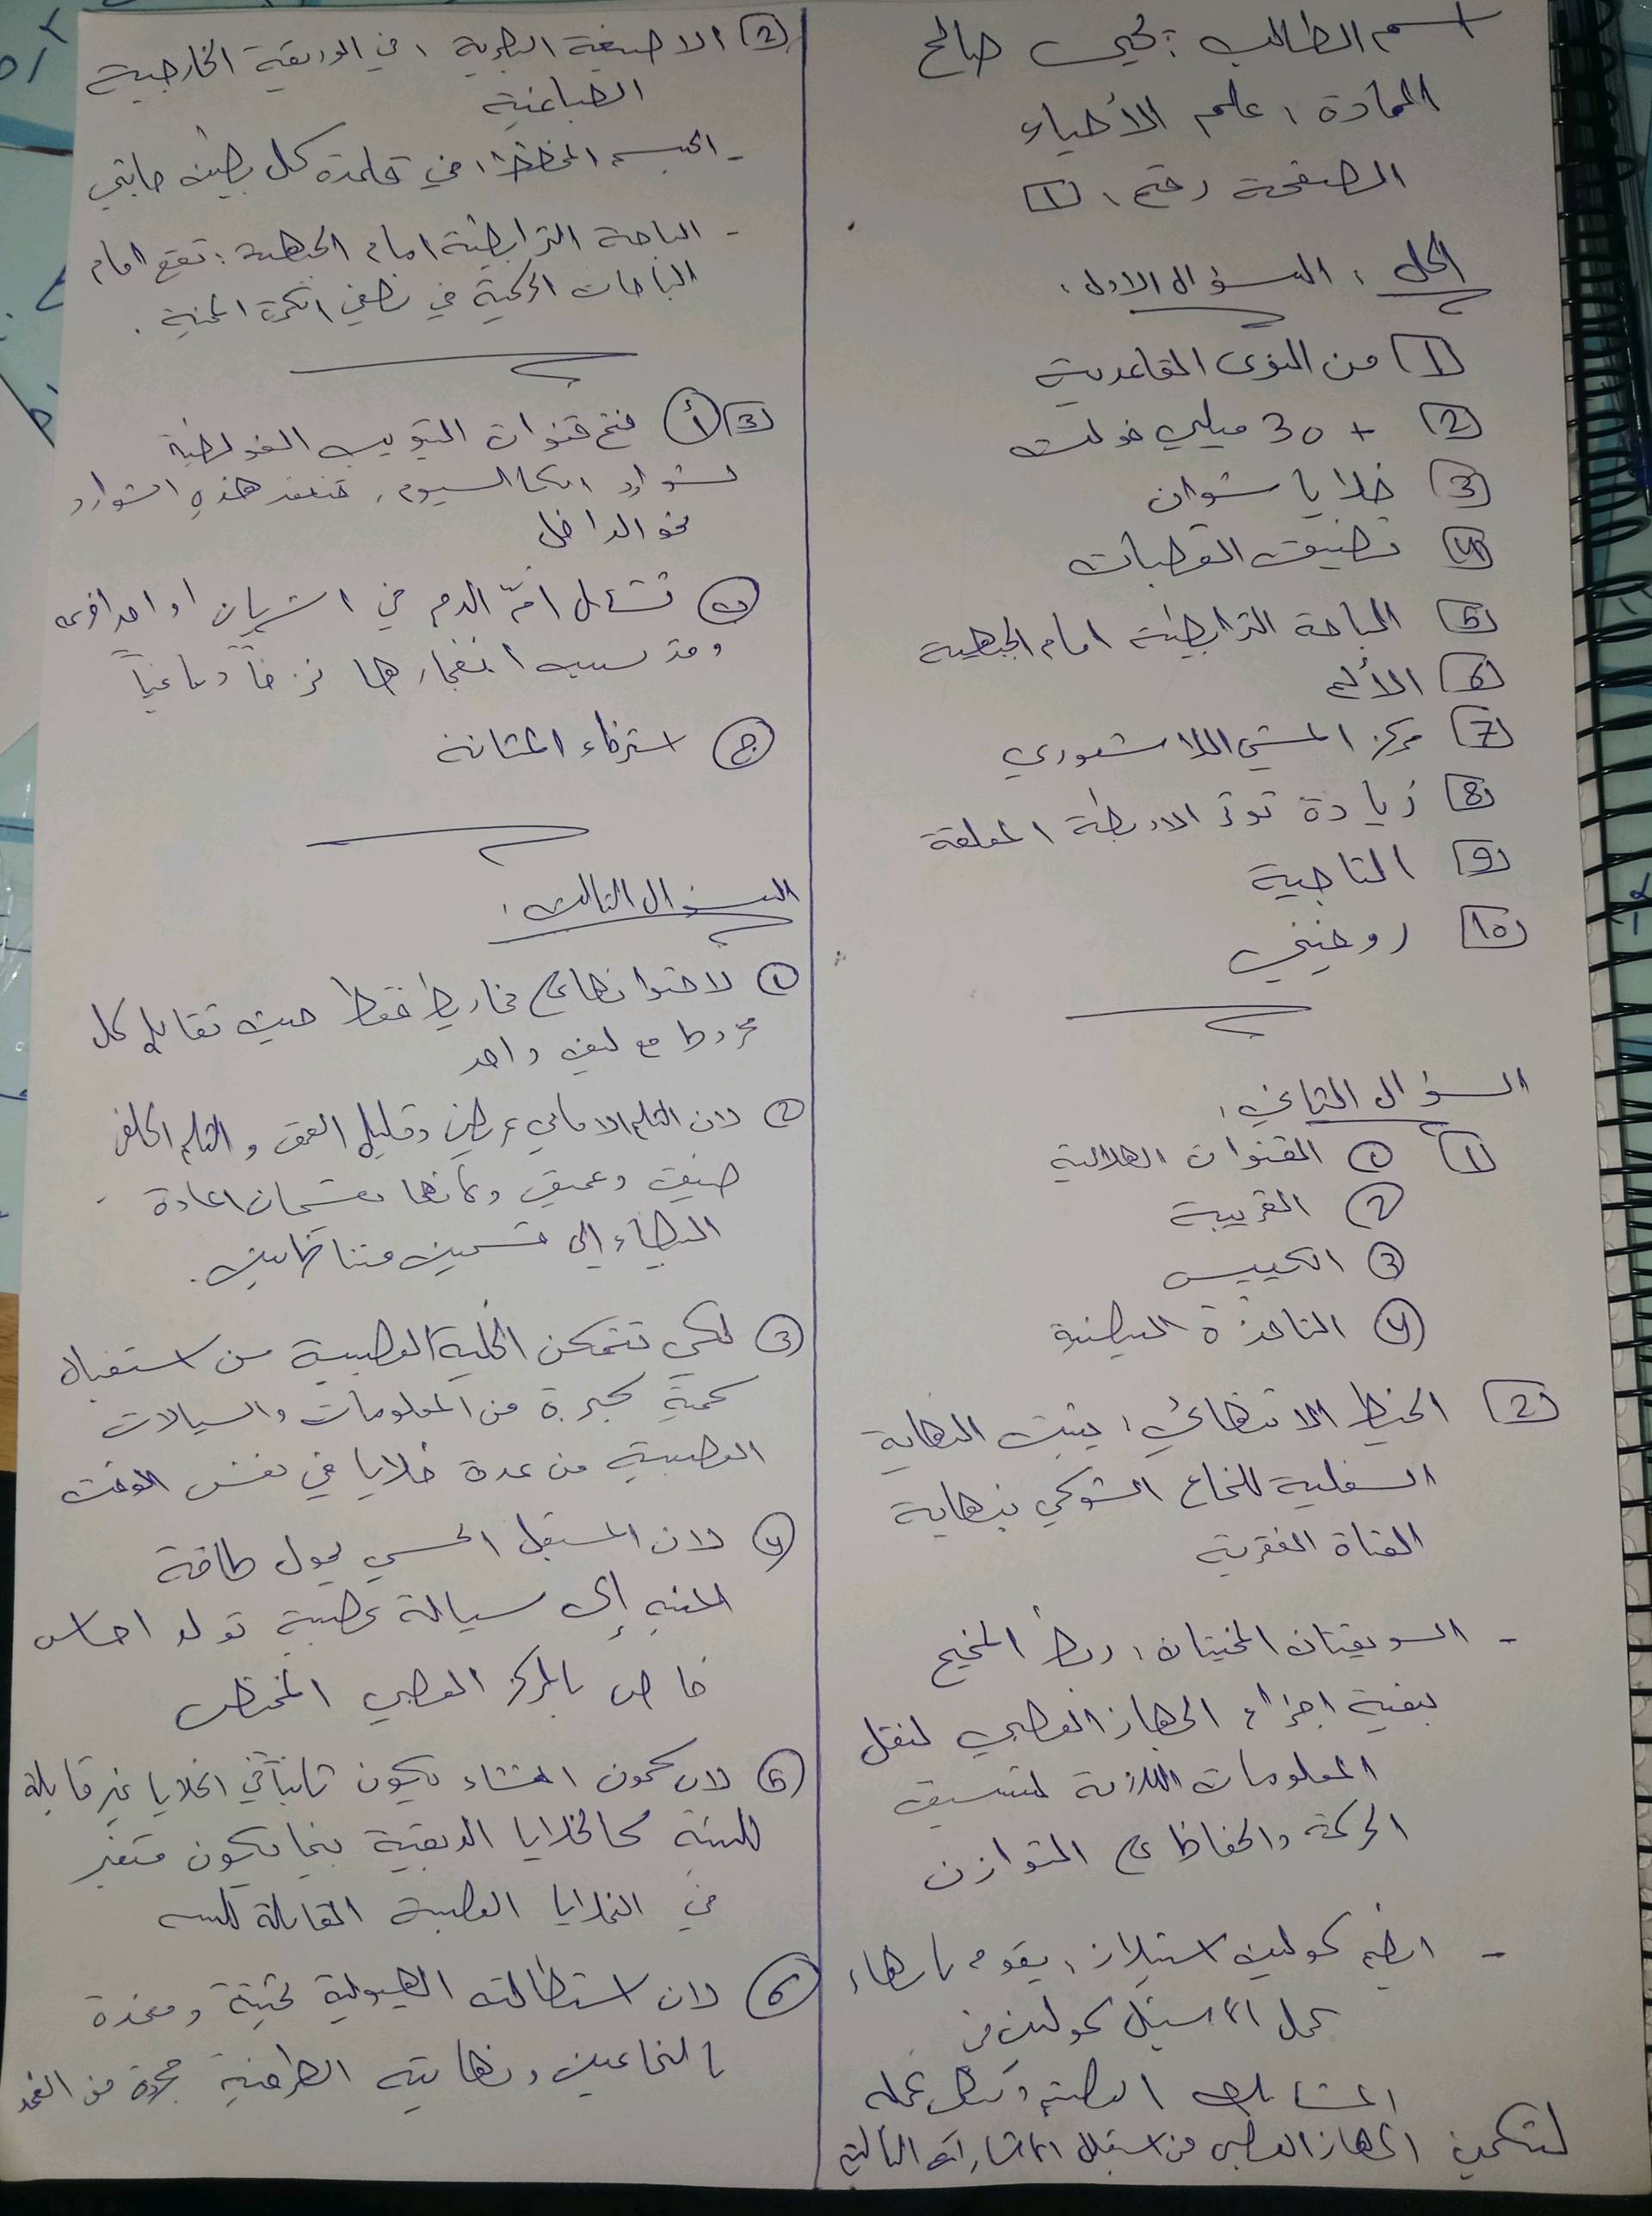 اسم الطالب: يحيى صالح
المادة: علم الأحياء
الصفحة رقم: 1
الحل: السؤال الاول:
1 من النوى القاعدية
2 + 30 ميلي فولت
3 خلايا شوان
4 تضيق القصبات
5 الباحة الترابطية امام الجبهية
6 الألم
7 مركز المشي اللاشعوري
8 زيادة توتر الاربطة المعلقة
9 التاجية
10 روفيني
السؤال الثاني:
1 ① القنوات الهلالية
② القريبة
③ الكييس
④ النافذة البيضية
2 الخيط الانتهائي: يثبت النهاية
السفلية للنخاع الشوكي بنهاية
القناة الفقرية
- السويقتان المخيتان: ربط المخيخ
ببقية اجزاء الجهاز العصبي لنقل
المعلومات اللازمة لتنسيق
الحركة والحفاظ على التوازن
- انظيم كولين استيلاز: يقوم بانهاء
عمل الاستيل كولين في
المشابك العصبية
لتمكين الجهاز العصبي من استقبال الاشارات التالية
2 الاصبغة البصرية: في الوريقة الخارجية
الصباغية
- الجسم المخطط: في قاعدة كل بطين جانبي
- الباحة الترابطية امام الجبهية: تقع امام
الباحات الحركية في نصفي الكرة المخية.
3 أ فتح قنوات التبويب الفولطية
لشوارد الكالسيوم، فتنفذ هذه الشوارد
نحو الداخل
ب تشكل أمّ الدم في الشريان او احد افرعه
وقد يسبب انفجارها نزفاً دماغياً
ج استرخاء المثانة
السؤال الثالث:
① لاحتوائها على مخاريط فقط حيث تقابل كل
مخروط مع ليف واحد
② لان الثلم الامامي عريض وقليل العمق والثلم الخلفي
ضيق وعميق وكأنهما يقسمان المادة
البيضاء إلى قسمين متناظرين.
③ لكي تتمكن الخلية العصبية من استقبال
كمية كبيرة من المعلومات والسيالات
العصبية من عدة خلايا في نفس الوقت
④ لان المستقبل الحسي يحول طاقة
المنبه إلى سيالة عصبية تولد احساس
خاص بالمركز العصبي المختص
⑤ لان كمون الغشاء يكون ثابتاً في الخلايا غير قابلة
للتنبه كالخلايا الدبقية بينما يكون متغير
في الخلايا العصبية القابلة للتنبه
⑥ لان استطالته الهيولية ثخينة ومغمدة
بالنخاعين ونهايته الطرفية مجردة من الغمد